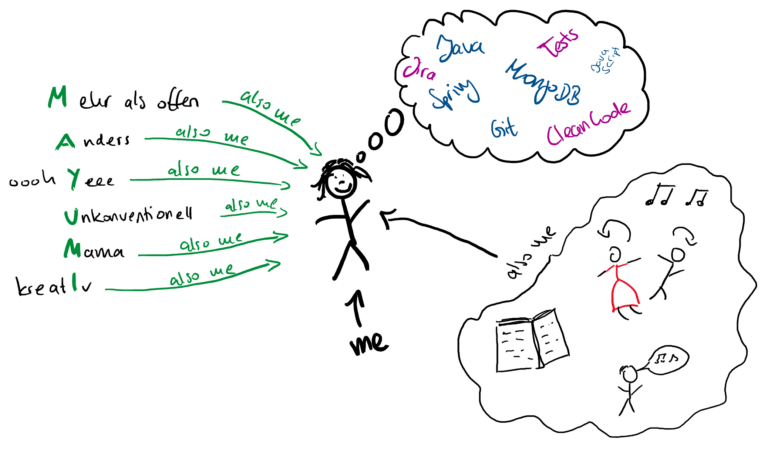 Java
Tests
Jira
Java
Script
Spring
MongoDB
Git
CleanCode
Mehr als offen
also me
Anders
also me
oooh Yeee
also me
Unkonventionell
also me
Mama
also me
kreatIv
also me
also me
me